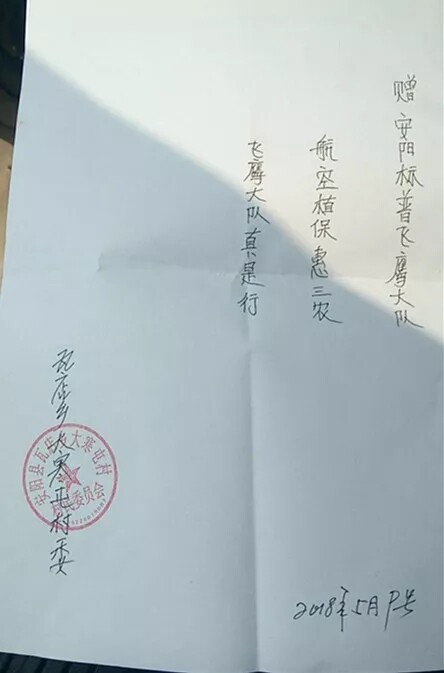 赠安阳标普飞鹰大队
航空植保惠三农
飞鹰大队真是行
瓦店乡大寒屯村委
安阳县瓦店乡大寒屯村
村民委员会
2018年5月